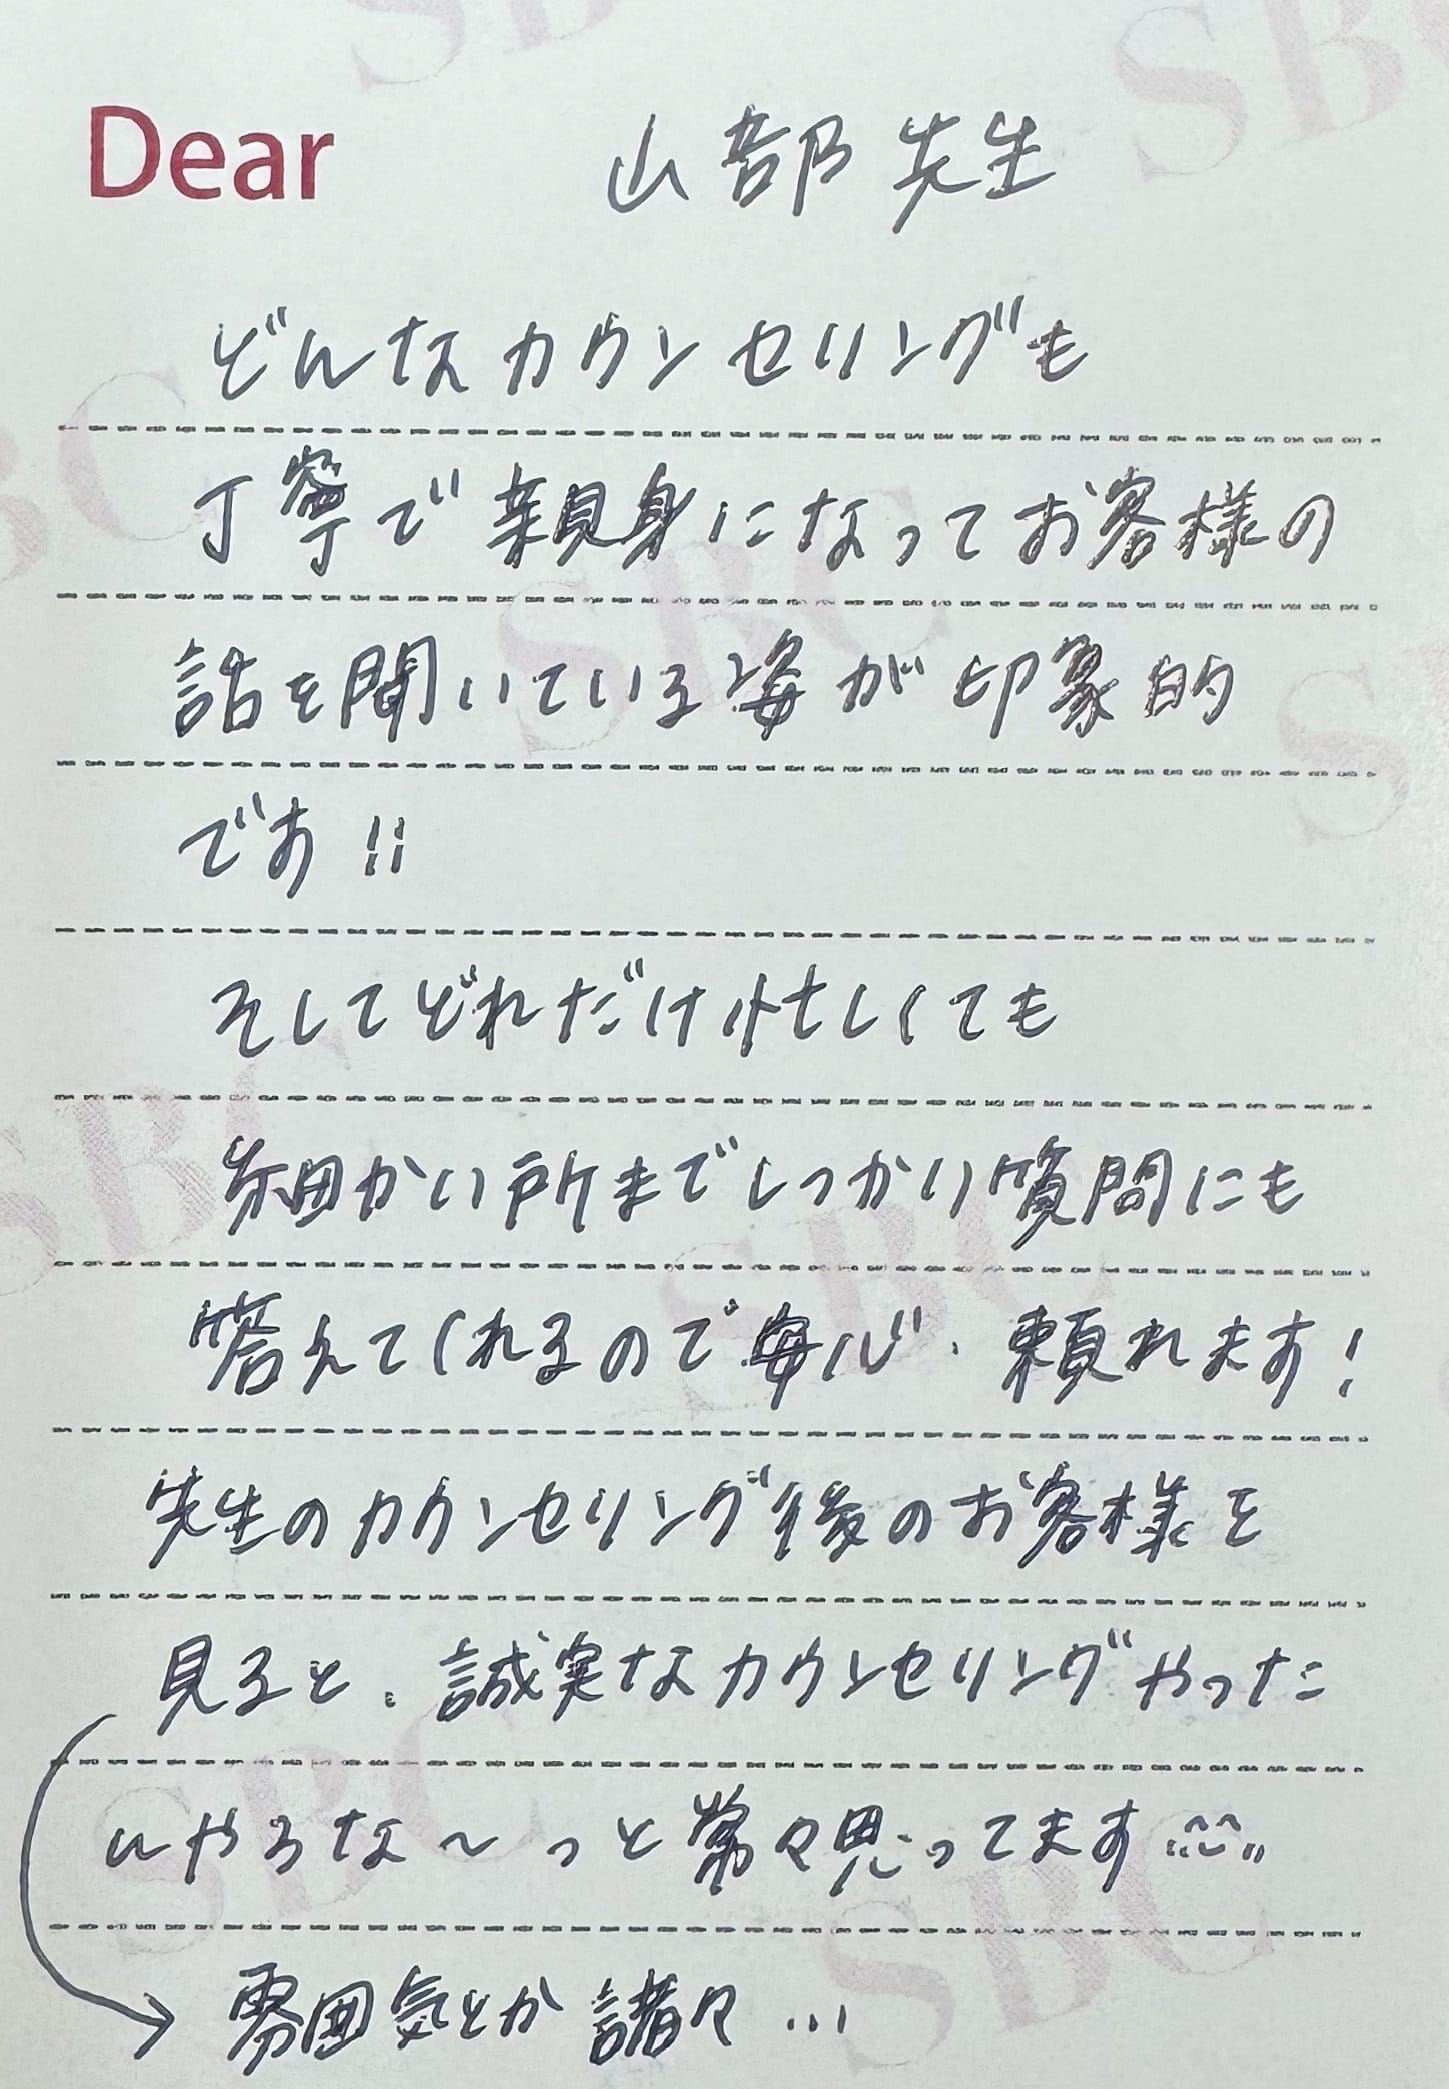 Dear 山部先生
どんなカウンセリングも
丁寧で親身になってお客様の
話を聞いている姿が印象的
です!!
そしてどれだけ忙しくても
細かい所までしっかり質問にも
答えてくれるので安心、頼れます!
先生のカウンセリング後のお客様を
見ると、誠実なカウンセリングやった
んやろな〜っと常々思ってます^^
→ 雰囲気とか諸々...
SBC